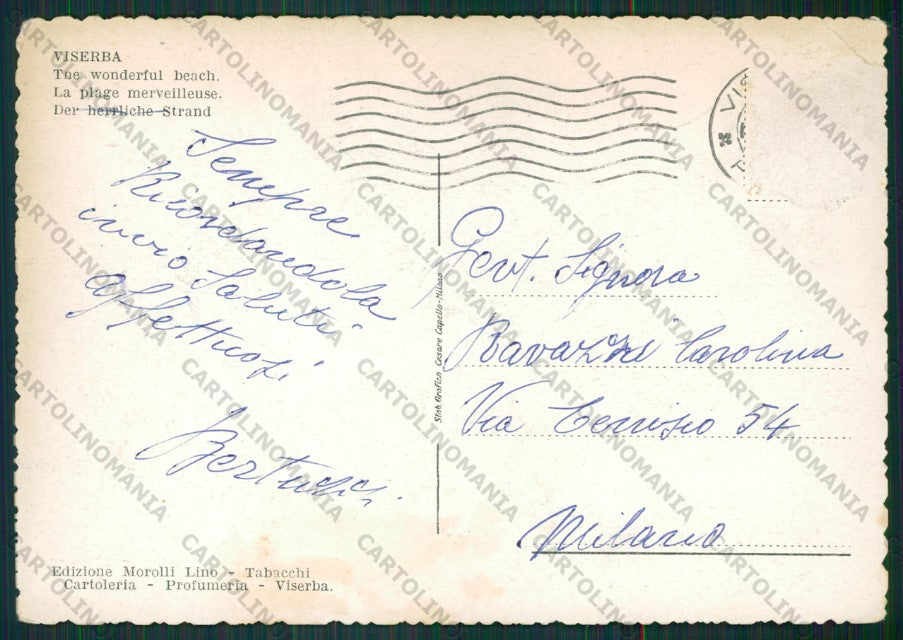 VISERBA
The wonderful beach.
La plage merveilleuse.
Der herrliche Strand
Sempre
Ricordandola
invio Saluti
affettuosi
VIS
Gent. Signora
Ravazzi Carolina
Via Cenisio 54
Milano
Stab. Grafico Cesare Capello-Milano
Edizione Morolli Lino - Tabacchi
Cartoleria - Profumeria - Viserba.
CARTOLINOMANIA